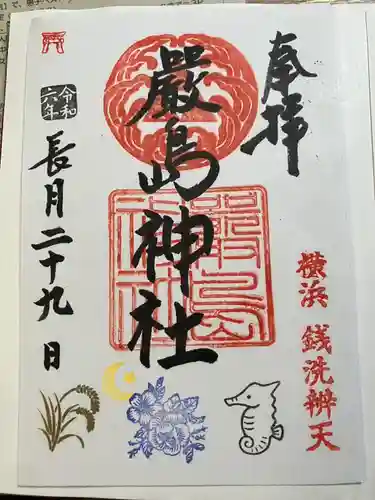 奉拝
横浜 銭洗辨天
嚴島神社
令和六年
長月二十九日